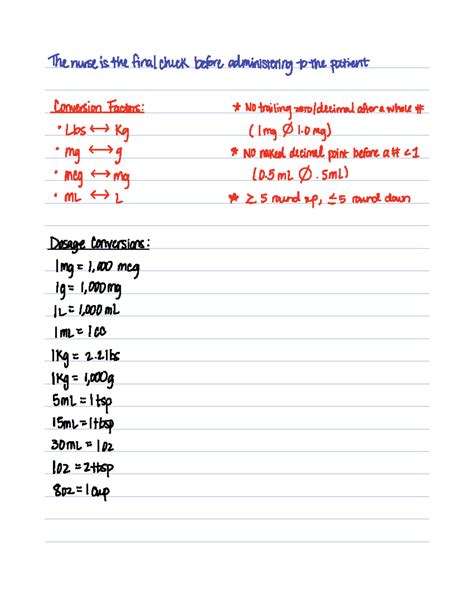 The nurse is the final check before administering to the patient
Conversion Factors:
• Lbs ↔ Kg
• mg ↔ g
• mcg ↔ mg
• mL ↔ L
* NO trailing zero/decimal after a whole #
(1mg Ø 1.0mg)
* NO naked decimal point before a # < 1
(0.5mL Ø .5mL)
* ≥ 5 round up, ≤ 5 round down
Dosage Conversions:
1mg = 1,000 mcg
1g = 1,000mg
1L = 1,000 mL
1mL = 1cc
1Kg = 2.2lbs
1Kg = 1,000g
5mL = 1tsp
15mL = 1tbsp
30mL = 1oz
1oz = 2tbsp
8oz = 1cup